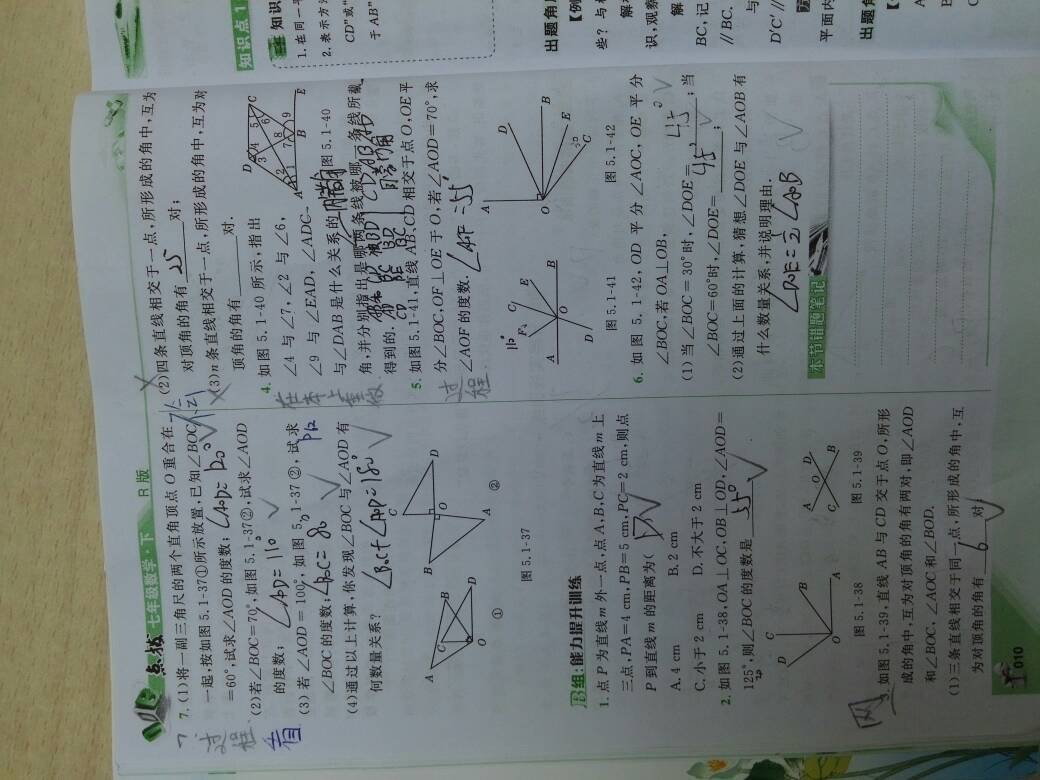 点拨 七年级数学·下 R版
7. (1)将一副三角尺的两个直角顶点 O 重合在
一起按如图 5.1-37①所示放置,已知∠BOC
=60°,试求∠AOD 的度数; ∠AOD=120°
(2)若∠BOC=70°,如图 5.1-37②,试求∠AOD
的度数; ∠AOD=110°
(3)若∠AOD=100°,如图 5.1-37②,试求
∠BOC 的度数; ∠BOC=80°
(4)通过以上计算,你发现∠BOC 与∠AOD 有
何数量关系? ∠BOC+∠AOD=180°
过程
A
C
B
D
O
①
B
C
O
D
A
②
图 5.1-37
B组:能力提升训练
1. 点 P 为直线 m 外一点,点 A,B,C 为直线 m 上
三点,PA=4 cm,PB=5 cm,PC=2 cm,则点
P 到直线 m 的距离为( D )
A. 4 cm B. 2 cm
C. 小于 2 cm D. 不大于 2 cm
2. 如图 5.1-38,OA⊥OC,OB⊥OD,∠AOD=
125°,则∠BOC 的度数是 55°
D
C
B
O
A
图 5.1-38
A
D
O
C
B
图 5.1-39
3. 如图 5.1-39,直线 AB 与 CD 交于点 O,所形
成的角中,互为对顶角的角有两对,即∠AOD
和∠BOC,∠AOC 和∠BOD.
(1)三条直线相交于同一点,所形成的角中,互
为对顶角的角有 6 对
010
(2)四条直线相交于一点,所形成的角中,互为
对顶角的角有 25 对;
(3)n 条直线相交于一点,所形成的角中,互为对
顶角的角有 对.
4. 如图 5.1-40 所示,指出
∠4 与∠7,∠2 与∠6,
∠9 与∠EAD,∠ADC
与∠DAB 是什么关系的
角,并分别指出是哪两条线被哪一条线所截
得到的.
D
C
3
4
5
6
2
1
7
8
9
A
B
E
图 5.1-40
5. 如图 5.1-41,直线 AB,CD 相交于点 O,OE 平
分∠BOC,OF⊥OE 于 O,若∠AOD=70°,求
∠AOF 的度数. ∠AOF=55°
过程
110°
F
C
E
A
O
B
D
图 5.1-41
A
D
B
E
C
O
图 5.1-42
6. 如图 5.1-42,OD 平分∠AOC,OE 平分
∠BOC,若 OA⊥OB,
(1)当∠BOC=30°时,∠DOE= 45° ;当
∠BOC=60°时,∠DOE= 45° ;
(2)通过上面的计算,猜想∠DOE 与∠AOB 有
什么数量关系,并说明理由.
∠DOE=½∠AOB
本节错题笔记
知识点 1
知识
1. 在同一平
2. 表示方
CD”或“
于 AB”
出题角
【例
些?与
解
识,观察
解
BC,记
∥BC.
与
D′C′∥
平面内
出题角